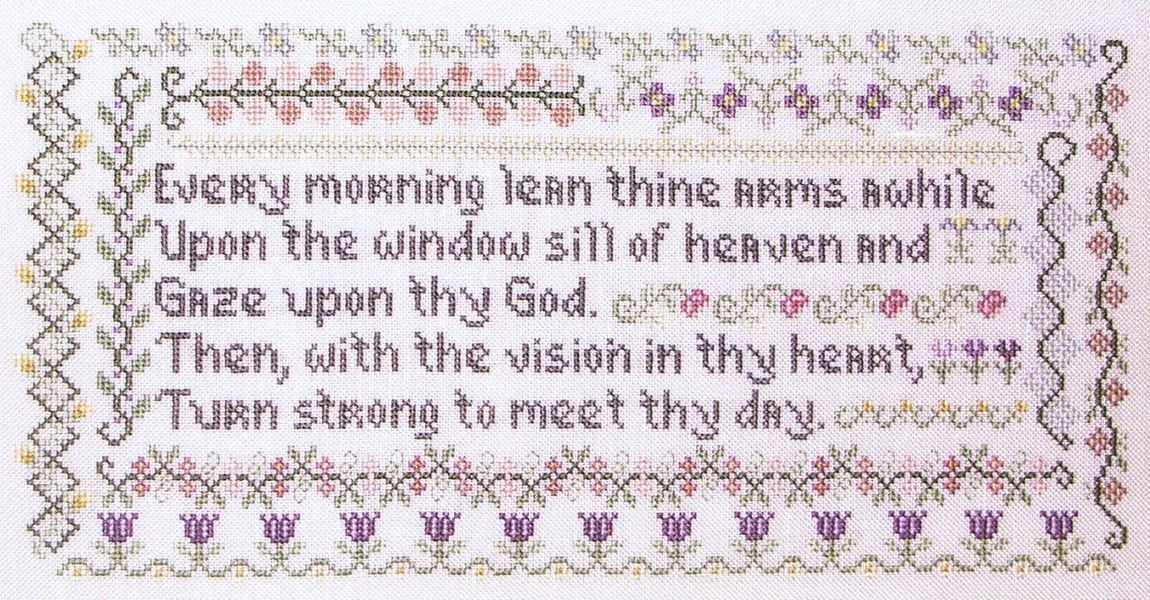 Every morning lean thine arms awhile
Upon the window sill of heaven and
Gaze upon thy God.
Then, with the vision in thy heart,
Turn strong to meet thy day.